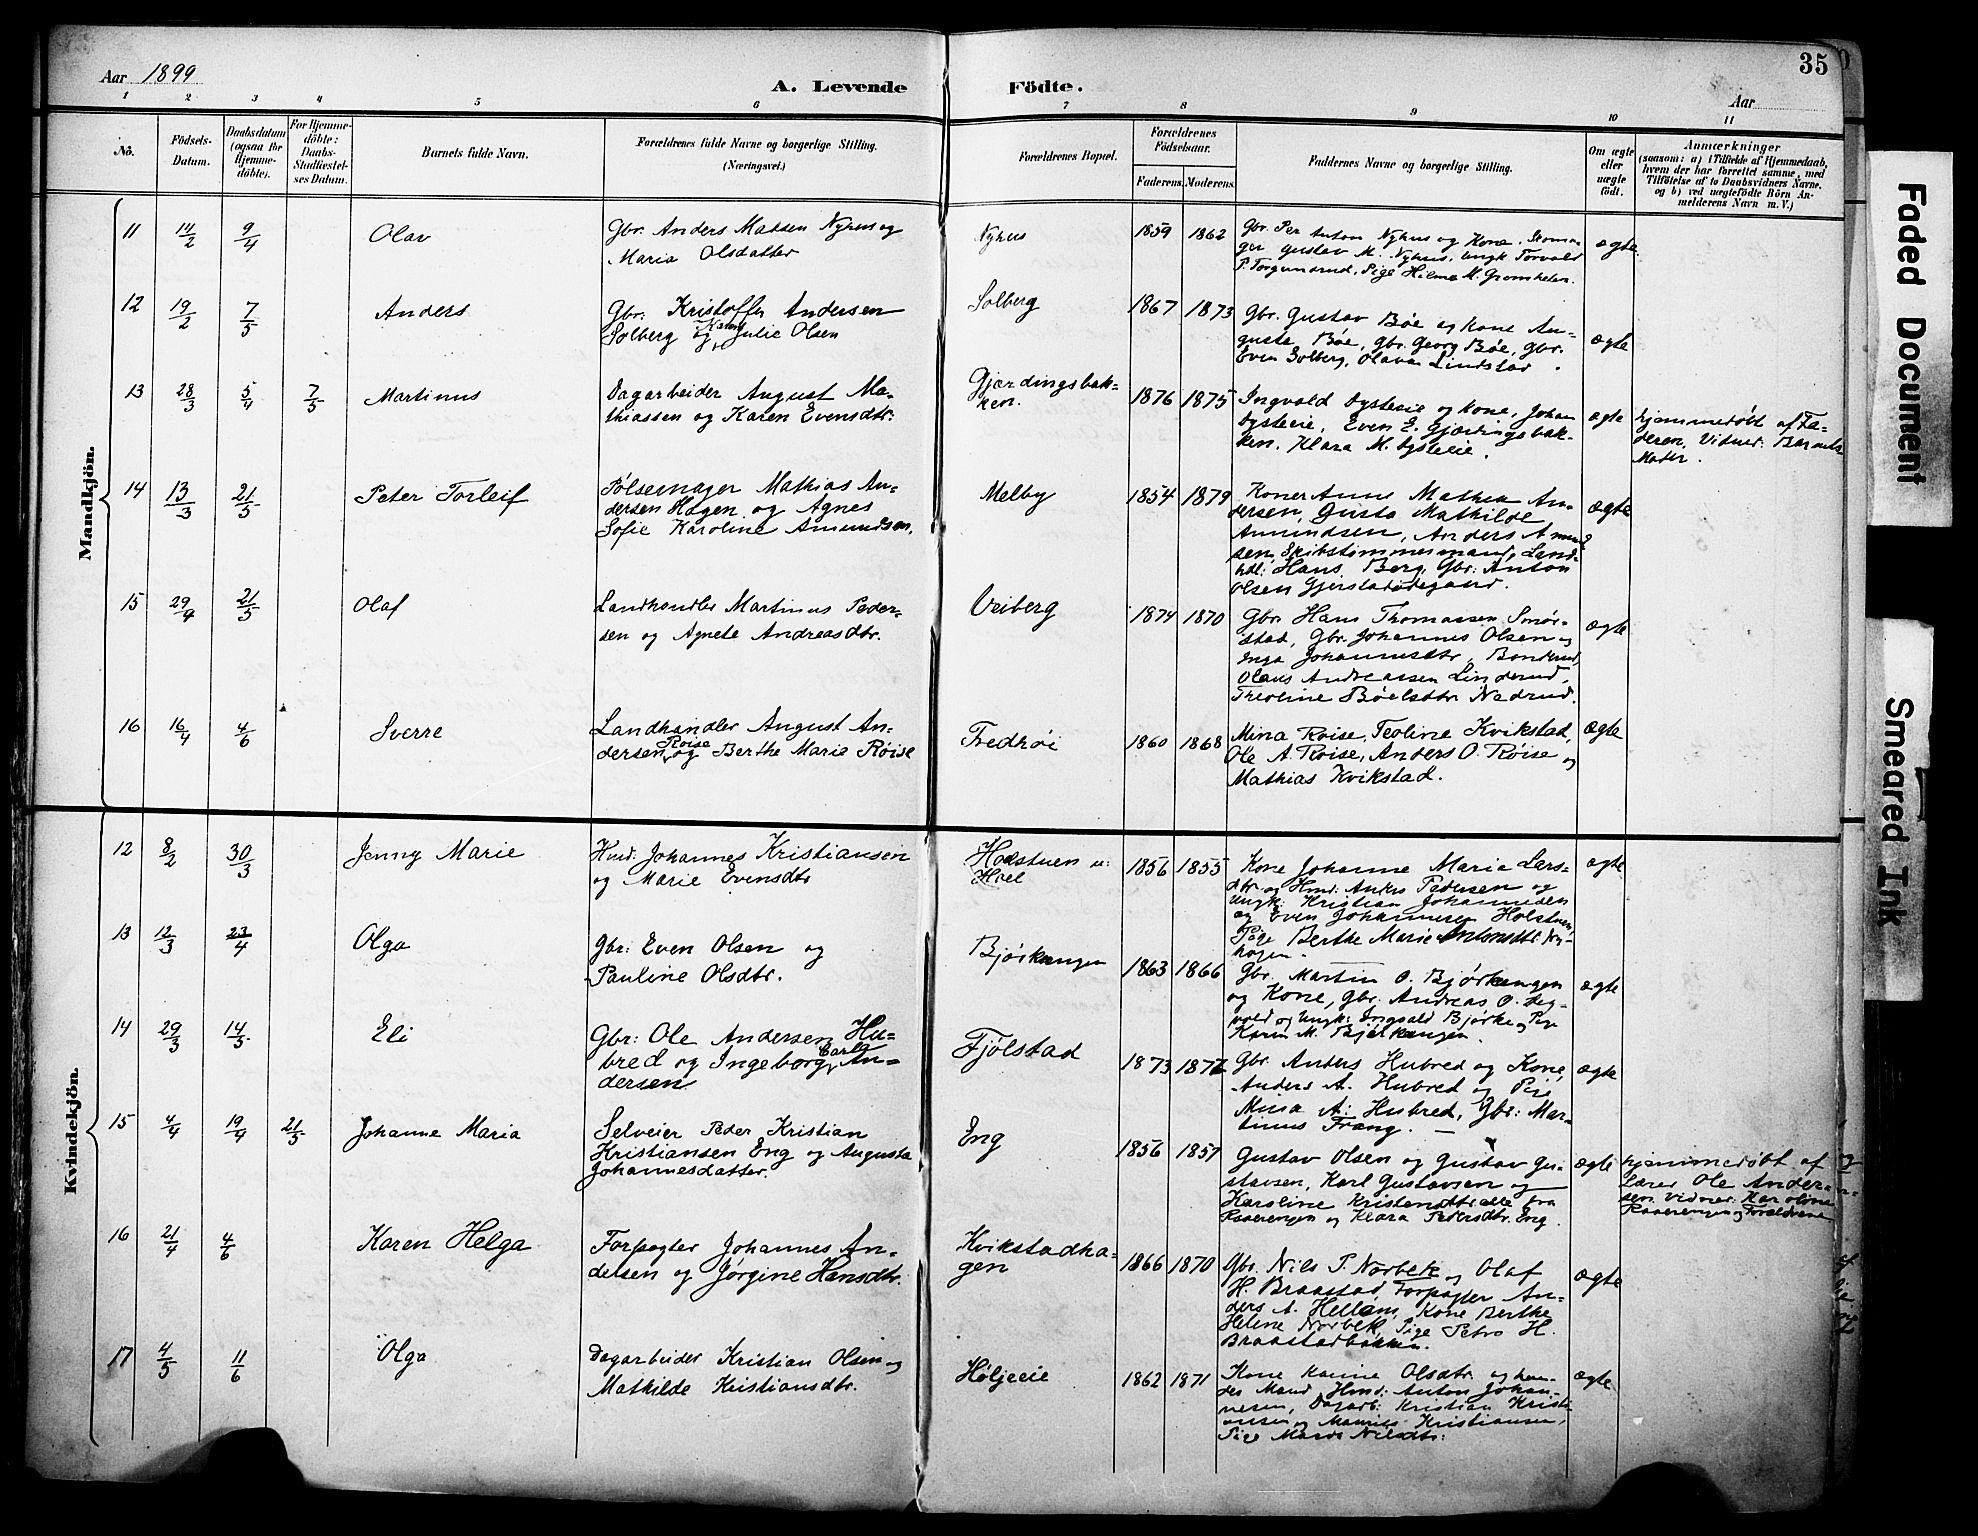 35
Aar 1899
A. Levende Födte.
Aar
1 2 3 4 5 6 7 8 9 10 11
No.
Födsels-Datum.
Daabsdatum (ogsaa for Hjemme-döbte).
For Hjemme-döbte: Daabs-Stadfæstel-ses Datum.
Barnets fulde Navn.
Forældrenes fulde Navne og borgerlige Stilling.
(Næringsvei.)
Forældrenes Bopæl.
Forældrenes Födselsaar.
Faderens. Moderens.
Faddernes Navne og borgerlige Stilling.
Om ægte eller uægte födt.
Anmærkninger
(saasom: a) i Tilfælde af Hjemmedaab,
hvem der har forrettet samme, med
Tilföielse af to Daabsvidners Navne,
og b) ved uægtefödte Börn An-
melderens Navn m. V.)
Mandkjön.
11 14/2 9/4 Olav
Gbr. Anders Matsen Nyhus og
Maria Olsdatter
Nyhus 1859 1862
Gbr. Per Anton Nyhus og Kone,
Gustav M. Nyhus, Ungk Torvald
P. Torgunrud, Pige Hilma M.
ægte
12 19/2 7/5 Anders
Gbr. Kristoffer Andersen
Solberg og Karen Julie Olsen
Solberg 1867 1873
Gbr. Gustav Bøe og Kone Au-
gusta Bøe, Gbr. Georg Bøe, gbr.
Even Solberg, Olava Lindstad.
ægte
13 28/3 5/4 7/5 Martinus
Dagarbeider August Ma-
thiassen og Karen Evensdtr.
Gjærdingsbak-
ken. 1876 1875
Ingvald Lysteeie og Kone, Johan
Lysteeie, Even E. Gjærdingsbak-
ken, Klara M. Lysteeie.
ægte
hjemmedøbt af Fa-
deren. Vidner: Barnets
Moder.
14 13/3 21/5 Peter Torleif
Pølsemager Mathias An-
dersen Hagen og Agnes
Sofie Karoline Amundsen.
Melby 1854 1879
Koner Anne Mathea An-
dersen, Gusta Mathilde
Amundsen, Anders Amund
sen Skibstømmermand, Land-
hdl: Hans Berg, Gbr: Anton
Olsen Gjerstadødegaard.
ægte
15 29/4 21/5 Olaf
Landhandler Martinus Peder-
sen og Agnete Andreasdtr.
Veiberg 1874 1870
Gbr. Hans Thomassen Smør-
stad, Gbr. Johannes Olsen og
Inga Johannesdtr. Bonderud,
Olaus Andreassen Linderud,
Treoline Bøelsdtr. Nadrud.
ægte
16 16/4 4/6 Sverre
Landhandler August An-
dersen Røise og Berthe Maria Røise
Fredhøi 1860 1868
Mina Røise, Teoline Kvikstad,
Ole A. Røise, Anders O. Røise og
Mathias Kvikstad.
ægte
Kvindekjön.
12 8/2 30/3 Jenny Marie
Hmd: Johannes Kristiansen
og Marie Evensdtr
Holstuen u:
Hoel 1856 1855
Kone Johanne Maria Lars-
dtr og Hmd: Anders Pedersen og
Ungk: Kristian Johannesen
og Even Johannesen Holstuen,
Pige Berthe Marie Antonsdtr. Ny-
hagen.
ægte
13 12/3 23/4 Olga
Gbr: Even Olsen og
Pauline Olsdtr.
Bjørkeengen 1863 1866
Gbr. Martin O. Bjørkengen
og Kone, Gbr. Andreas O.
vold og Ungk: Ingvald Bjørke og Pige
Karin M. Bjørkengen.
ægte
14 29/3 14/5 Eli
Gbr: Ole Andersen Hu-
bred og Ingeborg Carla An-
dersen
Fjølstad 1873 1872
Gbr. Anders Hubred og Kone,
Anders A. Hubred og Pige
Mina A: Hubred, Gbr: Mar-
tinus Frang.
ægte
15 4/4 19/4 21/5 Johanne Maria
Selveier Peder Kristian
Kristiansen Eng og Augusta
Johannesdatter.
Eng 1856 1857
Gustav Olsen og Gustav Gu-
stavsen, Karl Gustavsen og
Karoline Kristensdtr. alle fra
Raaerengen og Klara Pedersdtr. Eng.
ægte
hjemmedøbt af
Lærer Ole Ander-
sen. Vidner: Karoline
Raaerengen og Forældrene
16 21/4 4/6 Karen Helga
Forpagter Johannes An-
dersen og Jørgine Hansdtr.
Kvikstadha-
gen 1866 1870
Gbr. Nils P. Norbek og Olaf
H. Braastad, Forpagter An-
ders A. Hellam, Kone Berthe
Helene Norbek, Pige Petra H.
Braastadbakken.
ægte
17 4/5 11/6 Olga
Dagarbeider Kristian Olsen og
Mathilde Kristiansdtr.
Høljeeie 1862 1871
Kone Karine Olsdtr og hen-
des Mand Hmd: Anton Johan-
nesen, Dagarb: Kristian Kristi
ansen og Kristiansen,
Pige Nilsdtr:
ægte
Faded Document
Smeared Ink